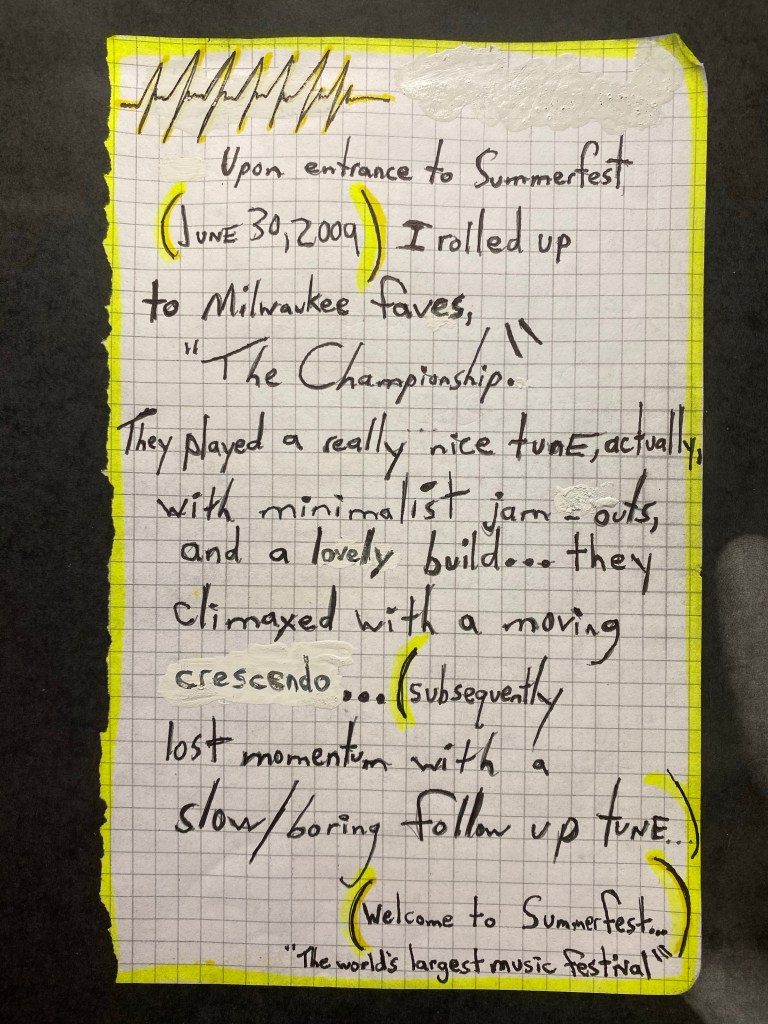 Upon entrance to Summerfest
(JUNE 30, 2009) I rolled up
to Milwaukee faves,
"The Championship."
They played a really nice tunE, actually,
with minimalist jam-outs,
and a lovely build... they
climaxed with a moving
crescendo... (subsequently
lost momentum with a
slow/boring follow up tuNE...)
(Welcome to Summerfest...)
"The world's largest music festival"